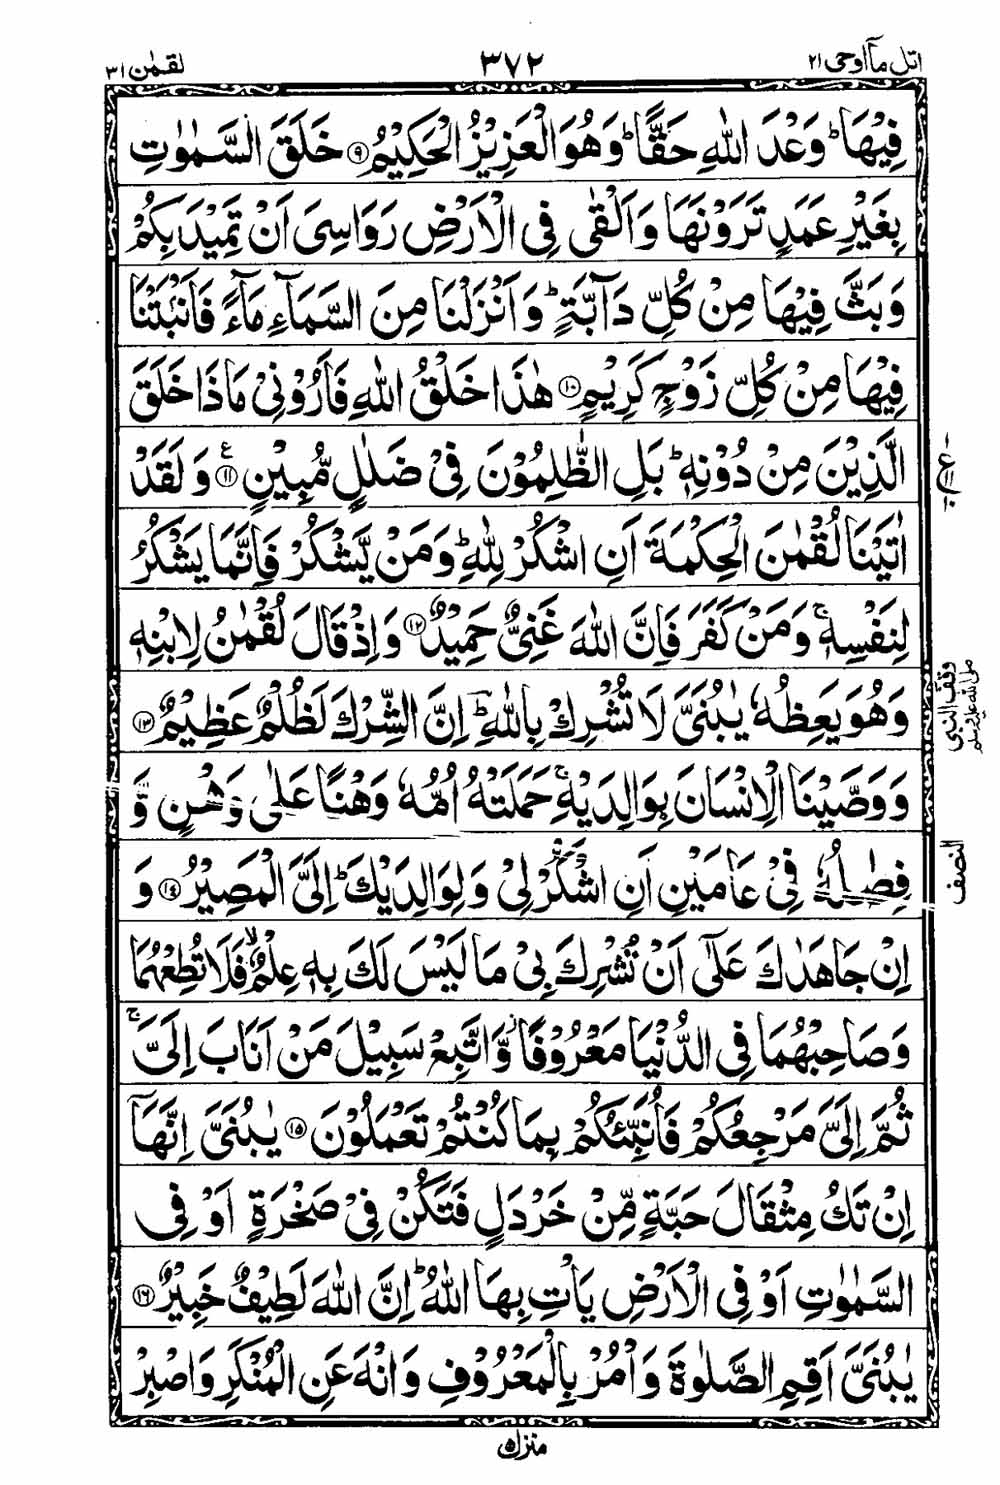 اتل ماۤ اوحی ۲۱
۳۷۲
لقمٰن ۳۱
فِيْهَا ؕ وَعْدَ اللّٰهِ حَقًّا ؕ وَهُوَ الْعَزِيْزُ الْحَكِيْمُ ۹ خَلَقَ السَّمٰوٰتِ
بِغَيْرِ عَمَدٍ تَرَوْنَهَا وَاَلْقٰى فِى الْاَرْضِ رَوَاسِىَ اَنْ تَمِيْدَ بِكُمْ
وَبَثَّ فِيْهَا مِنْ كُلِّ دَآبَّةٍ ؕ وَاَنْزَلْنَا مِنَ السَّمَآءِ مَآءً فَاَنْۢبَتْنَا
فِيْهَا مِنْ كُلِّ زَوْجٍ كَرِيْمٍ ۱۰ هٰذَا خَلْقُ اللّٰهِ فَاَرُوْنِىْ مَاذَا خَلَقَ
الَّذِيْنَ مِنْ دُوْنِهٖ ؕ بَلِ الظّٰلِمُوْنَ فِىْ ضَلٰلٍ مُّبِيْنٍ ۱۱ ع وَلَقَدْ
اٰتَيْنَا لُقْمٰنَ الْحِكْمَةَ اَنِ اشْكُرْ لِلّٰهِ ؕ وَمَنْ يَّشْكُرْ فَاِنَّمَا يَشْكُرُ
لِنَفْسِهٖ ۚ وَمَنْ كَفَرَ فَاِنَّ اللّٰهَ غَنِىٌّ حَمِيْدٌ ۱۲ وَاِذْ قَالَ لُقْمٰنُ لِابْنِهٖ
وَهُوَ يَعِظُهٗ يٰبُنَىَّ لَا تُشْرِكْ بِاللّٰهِ ؕ اِنَّ الشِّرْكَ لَظُلْمٌ عَظِيْمٌ ۱۳
وَوَصَّيْنَا الْاِنْسَانَ بِوَالِدَيْهِ ۚ حَمَلَتْهُ اُمُّهٗ وَهْنًا عَلٰى وَهْنٍ وَّ
فِصٰلُهٗ فِىْ عَامَيْنِ اَنِ اشْكُرْ لِىْ وَلِوَالِدَيْكَ ؕ اِلَىَّ الْمَصِيْرُ ۱۴ وَ
اِنْ جَاهَدٰكَ عَلٰٓى اَنْ تُشْرِكَ بِىْ مَا لَيْسَ لَكَ بِهٖ عِلْمٌ ۙ فَلَا تُطِعْهُمَا
وَصَاحِبْهُمَا فِى الدُّنْيَا مَعْرُوْفًا ؗ وَّاتَّبِعْ سَبِيْلَ مَنْ اَنَابَ اِلَىَّ ۚ
ثُمَّ اِلَىَّ مَرْجِعُكُمْ فَاُنَبِّئُكُمْ بِمَا كُنْتُمْ تَعْمَلُوْنَ ۱۵ يٰبُنَىَّ اِنَّهَاۤ
اِنْ تَكُ مِثْقَالَ حَبَّةٍ مِّنْ خَرْدَلٍ فَتَكُنْ فِىْ صَخْرَةٍ اَوْ فِى
السَّمٰوٰتِ اَوْ فِى الْاَرْضِ يَاْتِ بِهَا اللّٰهُ ؕ اِنَّ اللّٰهَ لَطِيْفٌ خَبِيْرٌ ۱۶
يٰبُنَىَّ اَقِمِ الصَّلٰوةَ وَاْمُرْ بِالْمَعْرُوْفِ وَانْهَ عَنِ الْمُنْكَرِ وَاصْبِرْ
وقف النبی
صلی اللہ علیہ وسلم
النصف
منزل ۵